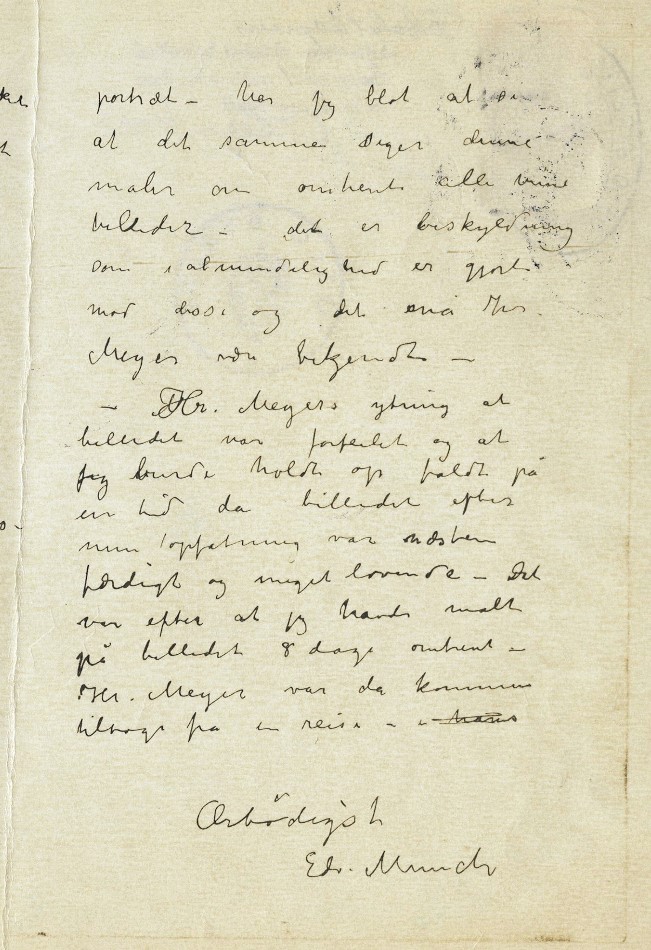 portræt – har jeg blot at
at det samme siger denne
maler om omtrent alle mine
billeder – det er beskyldning
som i almindelighed er gjort
mod disse og det må Hr.
Meyer være bekjendt –
– Hr. Meyers ytring at
billedet var forfeilet og at
jeg burde holdt op faldt på
en tid da billedet efter
min opfatning var næsten
færdigt og meget lovende – Det
var efter at jeg havde malt
på billedet 8 dage omtrent –
Hr. Meyer var da kommen
tilbage fra en reise –
Ærbödigst
Edv. Munch